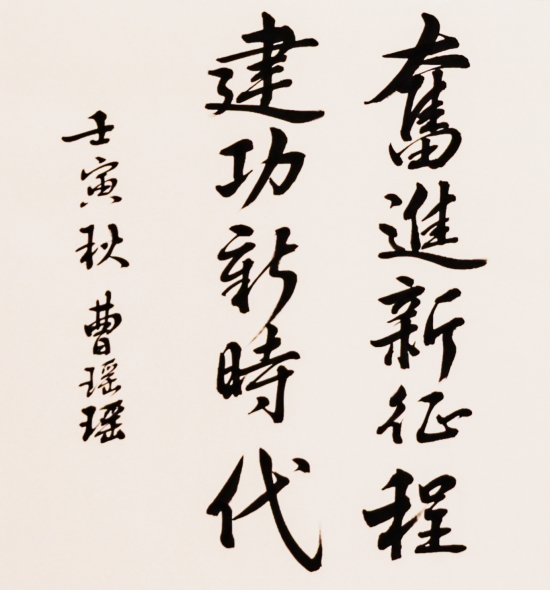 奮進新征程
建功新時代
壬寅秋 曹瑶瑶